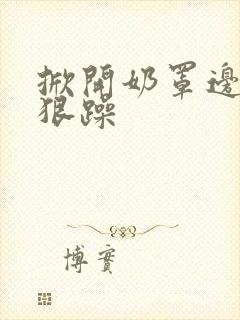 掀開奶罩邊
狠躁
博實